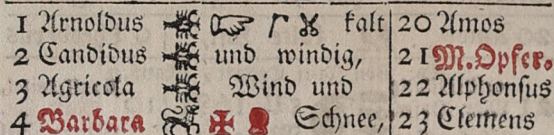 1 Arnoldus kalt 20 Amos
2 Candidus und windig, 21 M. Opfer.
3 Agricola Wind und 22 Alphonsus
4 Barbara Schnee, 23 Clemens